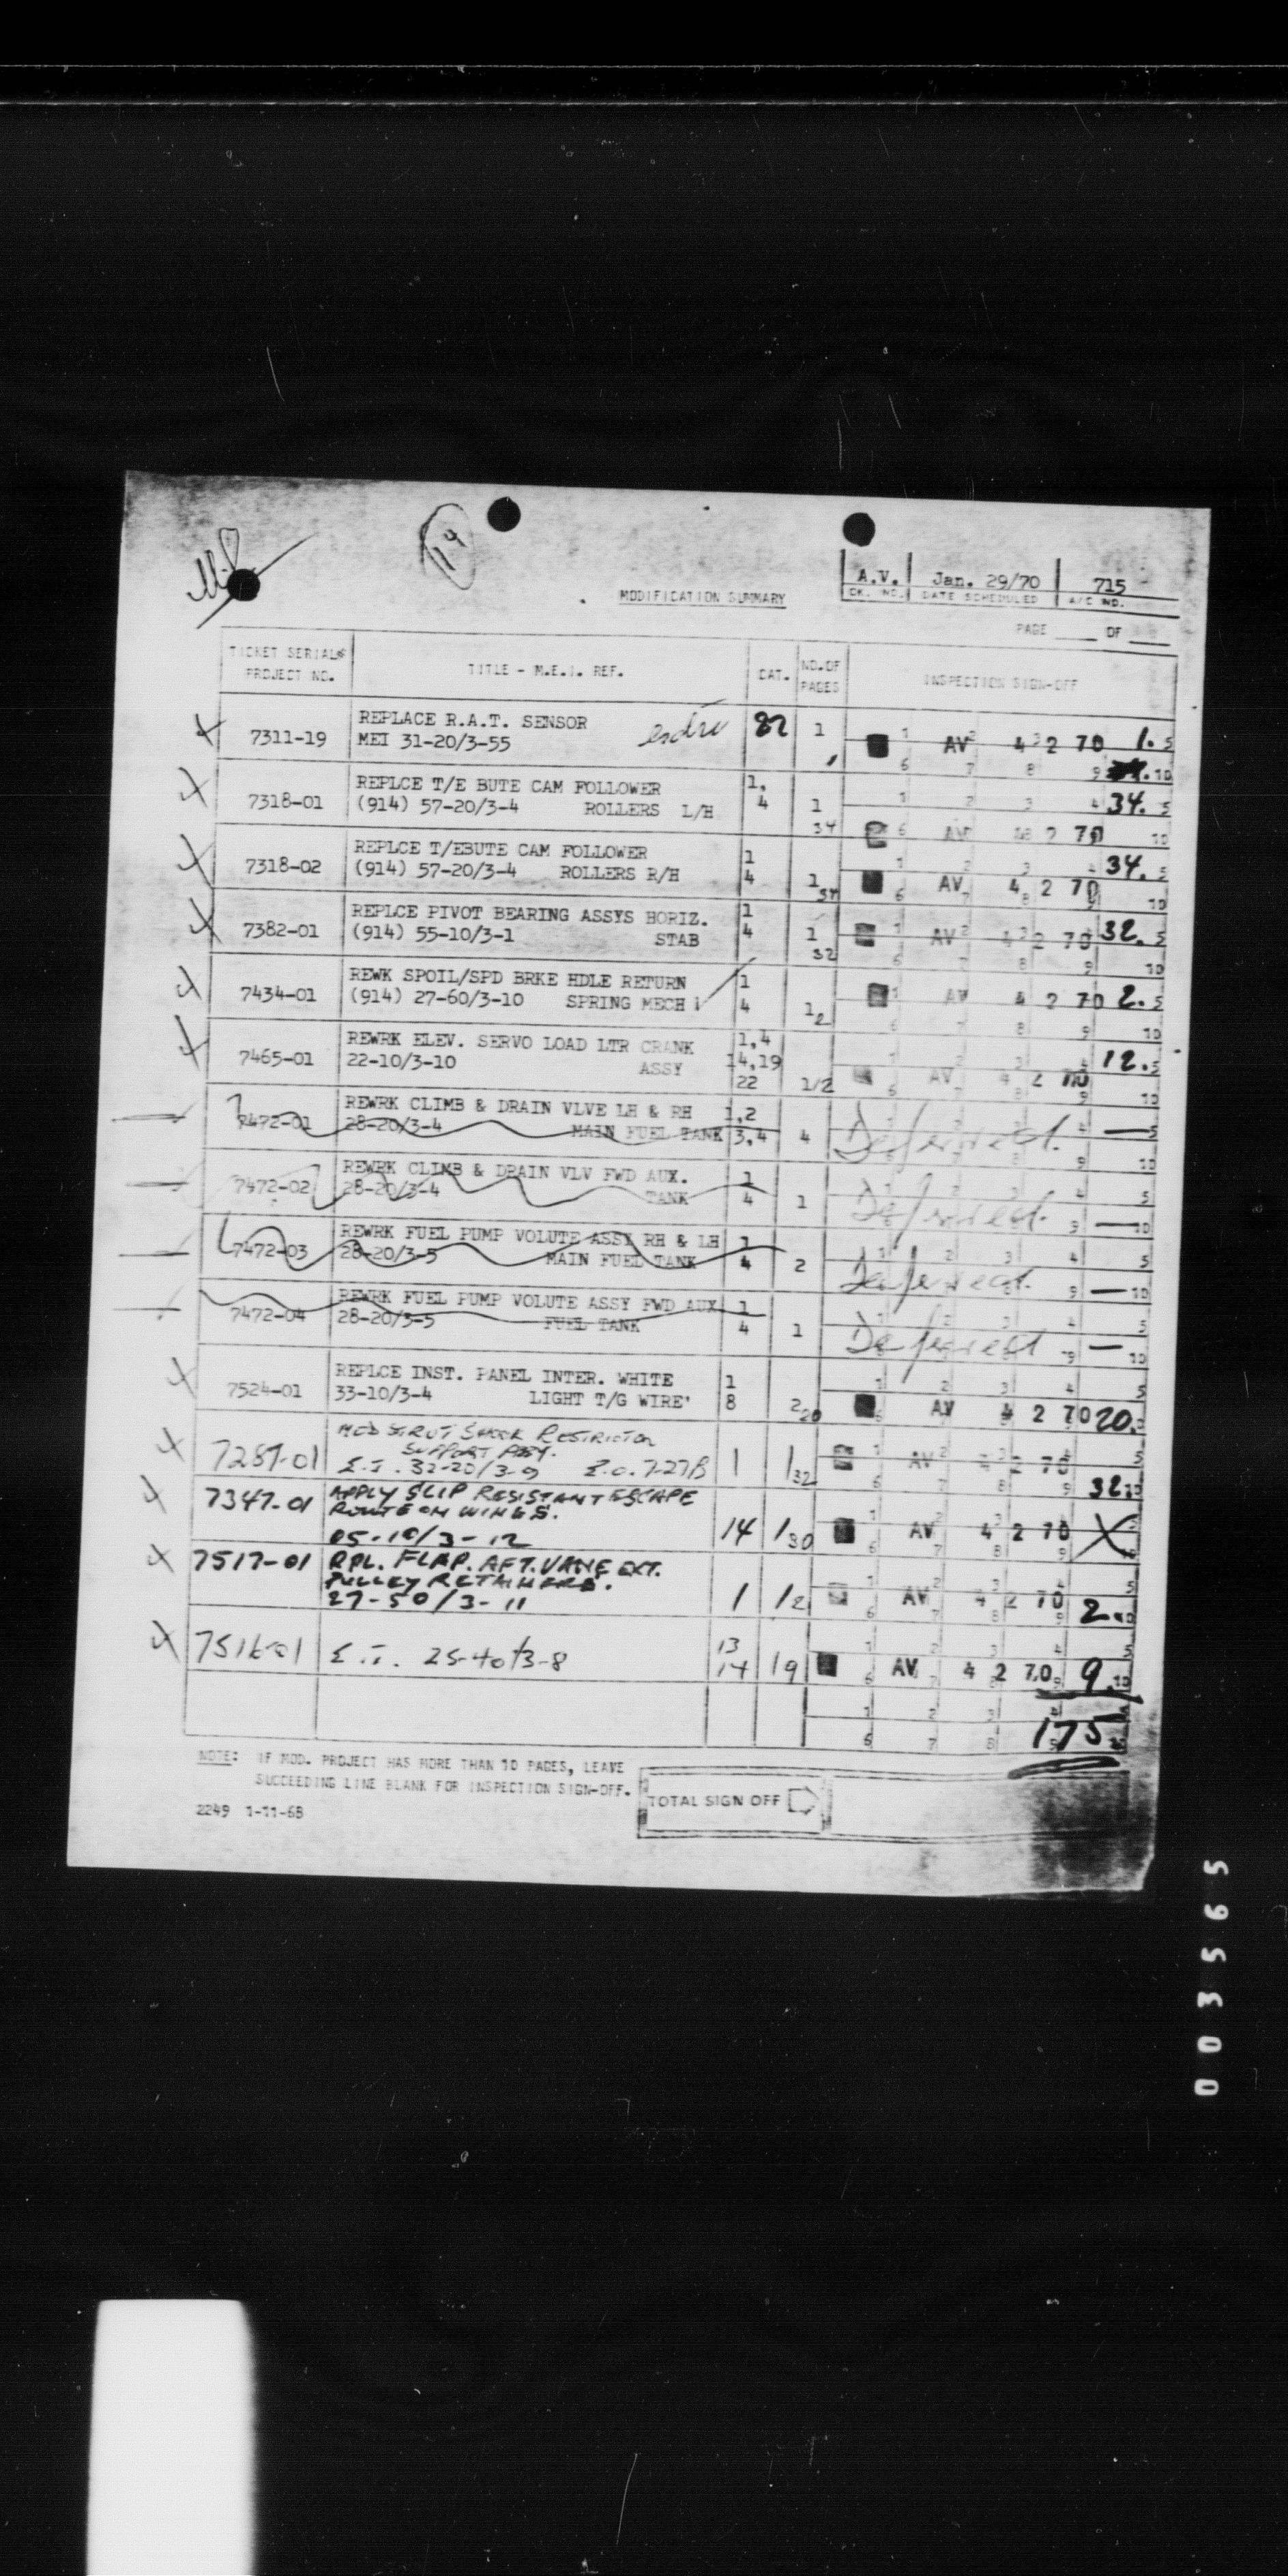 14
A.V. Jan. 29/70 715
MODIFICATION SUMMARY CK. NO. DATE SCHEDULED A/C NO.
PAGE ____ OF ____
TICKET SERIAL& PROJECT NO. TITLE - M.E.I. REF. CAT. NO.OF PAGES INSPECTION SIGN-OFF
REPLACE R.A.T. SENSOR
7311-19 MEI 31-20/3-55 82 1 AV 4 2 70 1.
REPLCE T/E BUTE CAM FOLLOWER 1,
7318-01 (914) 57-20/3-4 ROLLERS L/H 4 1 34.
34 AV 4 2 70
REPLCE T/EBUTE CAM FOLLOWER 1
7318-02 (914) 57-20/3-4 ROLLERS R/H 4 1 34 AV 4 2 70 34.
REPLCE PIVOT BEARING ASSYS HORIZ. 1
7382-01 (914) 55-10/3-1 STAB 4 1 32 AV 4 2 70 32.
REWK SPOIL/SPD BRKE HDLE RETURN 1
7434-01 (914) 27-60/3-10 SPRING MECH 4 1 2 AV 4 2 70 2.
REWRK ELEV. SERVO LOAD LTR CRANK 1,4
7465-01 22-10/3-10 ASSY 14,19 12.
22 1/2 AV 4 2 70
REWRK CLIMB & DRAIN VLVE LH & RH 1,2
7472-01 28-20/3-4 MAIN FUEL TANK 3,4 4 Deferred.
REWRK CLIMB & DRAIN VLV FWD AUX. 1
7472-02 28-20/3-4 TANK 4 1 Deferred.
REWRK FUEL PUMP VOLUTE ASSY RH & LH 1
7472-03 28-20/3-5 MAIN FUEL TANK 4 2 Deferred.
REWRK FUEL PUMP VOLUTE ASSY FWD AUX 1
7472-04 28-20/3-5 FUEL TANK 4 1 Deferred
REPLCE INST. PANEL INTER. WHITE 1
7524-01 33-10/3-4 LIGHT T/G WIRE' 8 2 20 AV 4 2 70 20.
MOD STRUT SHOCK RESTRICTOR
SUPPORT ASSY.
7287-01 E.I. 32-20/3-9 E.O. 7-27B 1 1 32 AV 4 2 70 32
APPLY SLIP RESISTANT ESCAPE
7347-01 ROUTE ON WINGS.
05-10/3-12 14 1 30 AV 4 2 70 X
7517-01 RPL. FLAP. AFT. VANE EXT.
PULLEY RETAINERS.
27-50/3-11 1 1 2 AV 4 2 70 2.
7516-01 E.I. 25-40/3-8 13
14 1 9 AV 4 2 70 9.
175
NOTE: IF MOD. PROJECT HAS MORE THAN 10 PAGES, LEAVE
SUCCEEDING LINE BLANK FOR INSPECTION SIGN-OFF.
TOTAL SIGN OFF
2249 1-11-68
003565